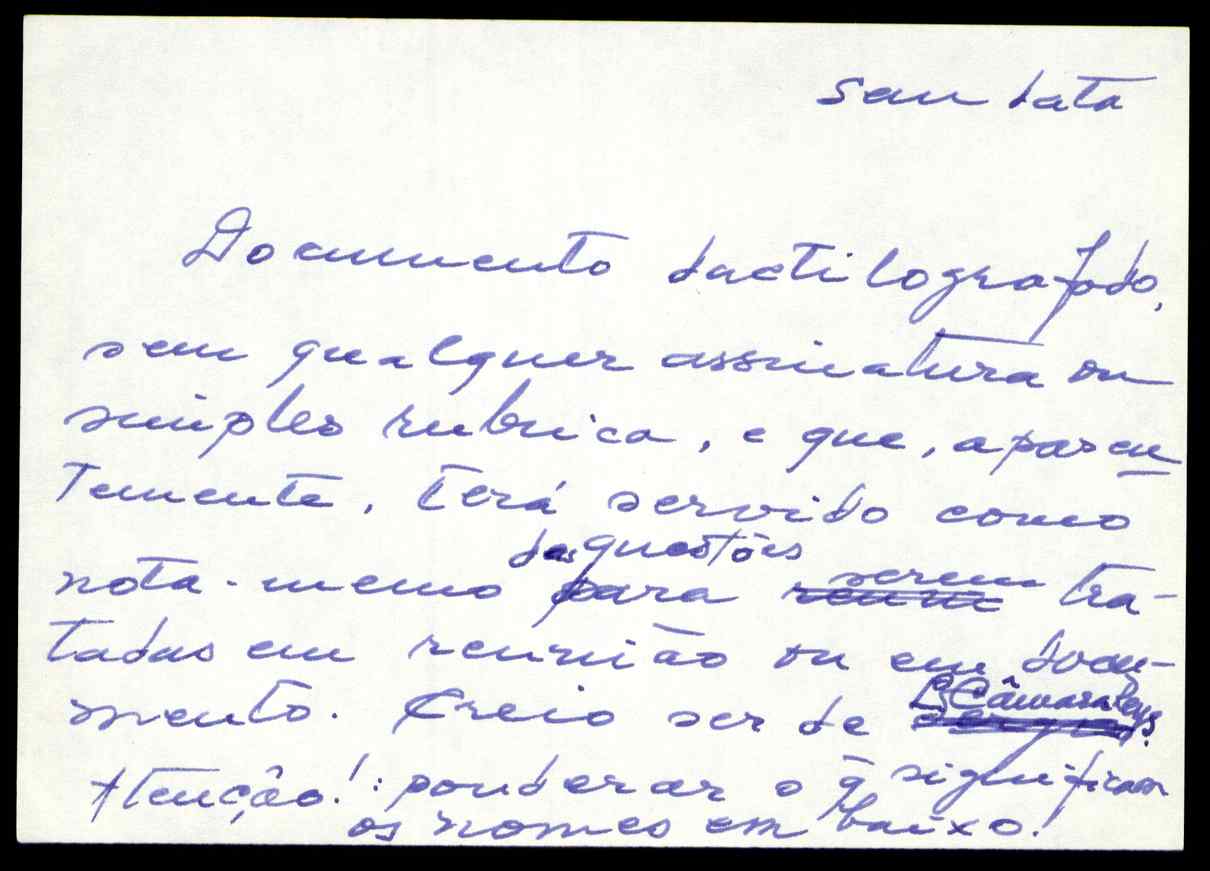 sem data
Documento dactilografado,
sem qualquer assinatura ou
simples rubrica, e que, aparen
temente, terá servido como
das questões
nota-memo para serem tra-
tadas em reunião ou em docu-
mento. Creio ser de L. Câmara Leys?
Atenção!: ponderar o q̃ significam
os nomes em baixo!